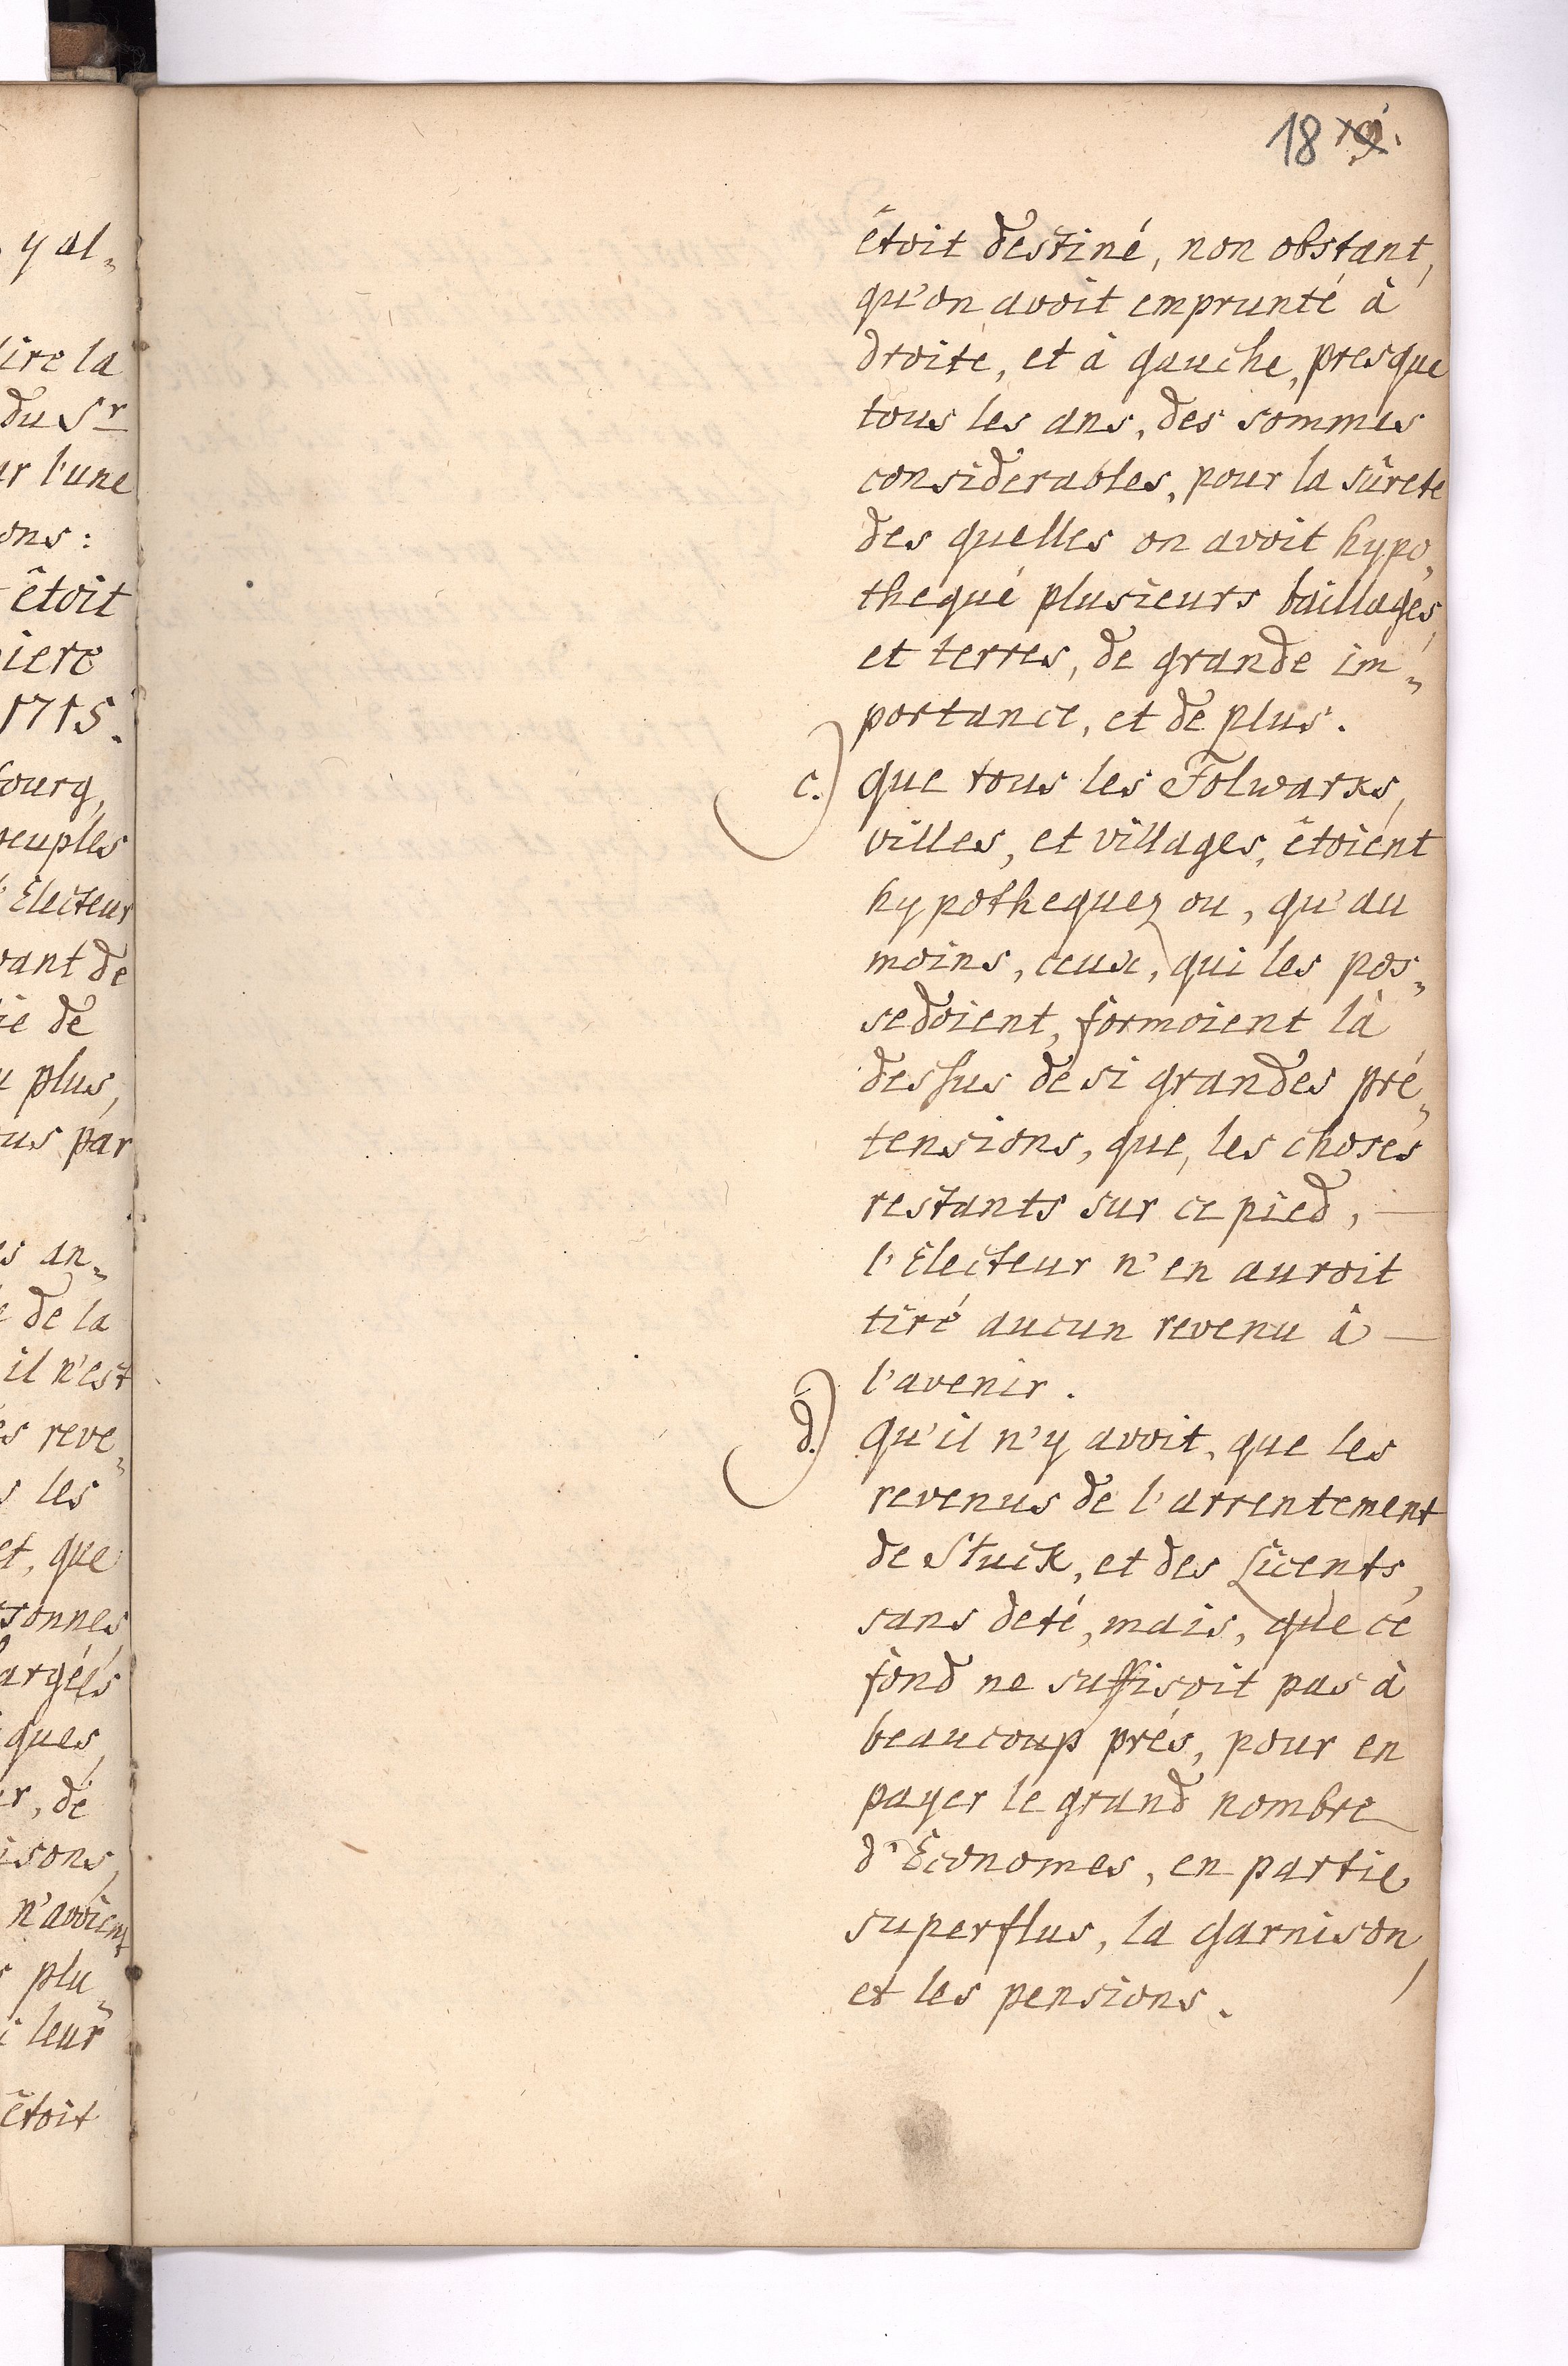 18 19.
y al„
ire la
du Sr
ar l'une
ons:
êtoit
iere
1715.
bourg,
peuples
l'Electeur
vant de
ie de
u plus,
us par
s an„
e de la
il n'est
es reve„
s les
et, que
rsonnes
argées
ques,
r, de
isons,
n'avoient
s plu„
i leur
êtoit
êtoit destiné, non obstant,
qu'on avoit emprunté à
droite, et à gauche, presque
tous les ans, des sommes
considerables, pour la sûrete
des quelles on avoit hypo„
thequé plusieurs bailliages,
et terres, de grande im„
portance, et de plus.
c.) que tous les Folwarks,
villes, et villages, êtoient
hypothequez ou, qu'au
moins, ceux, qui les pos„
sedoient, formoient là
dessus de si grandes pré„
tensions, que, les choses
restants sur ce pied, —
l'Electeur n'en auroit
tiré aucun revenu à —
l'avenir.
d.) qu'il n'y avoit, que les
revenus de l'arrentement
de Stuck, et des Licents,
sans deté, mais, que ce
fond ne suffisoit pas à
beaucoup prés, pour en
payer le grand nombre
d'Economes, en partie
superflus, la garnison,
et les pensions.